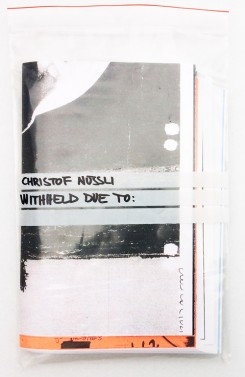 CHRISTOF NÜSSLI
WITHHELD DUE TO: